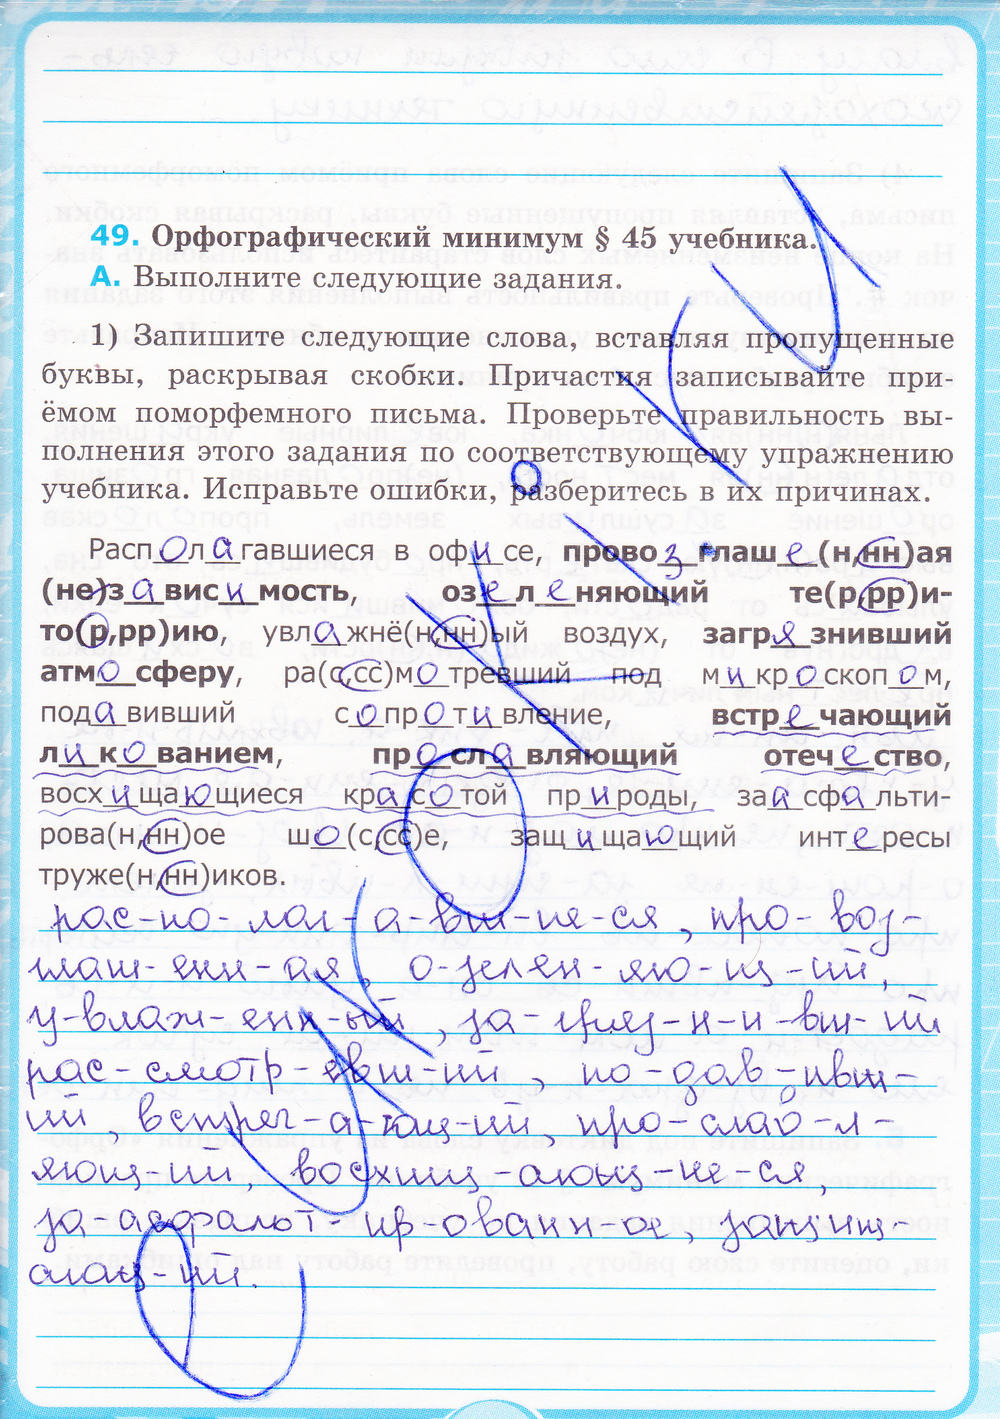 49. Орфографический минимум § 45 учебника.
А. Выполните следующие задания.
1) Запишите следующие слова, вставляя пропущенные
буквы, раскрывая скобки. Причастия записывайте при-
ёмом поморфемного письма. Проверьте правильность вы-
полнения этого задания по соответствующему упражнению
учебника. Исправьте ошибки, разберитесь в их причинах.
Располагавшиеся в офисе, провозглаше(н,нн)ая
(не)зависимость, озеленяющий те(р,рр)и-
то(р,рр)ию, увлажнё(н,нн)ый воздух, загрязнивший
атмосферу, ра(с,сс)мотревший под микроскопом,
подавивший сопротивление, встречающий
ликованием, прославляющий отечество,
восхищающиеся красотой природы, заасфальти-
рова(н,нн)ое шо(с,сс)е, защищающий интересы
труже(н,нн)иков.
рас-по-лаг-а-вш-ие-ся, про-воз-
глаш-енн-ая, о-зелен-яю-щ-ий,
у-влаж-енн-ый, за-гряз-н-и-вш-ий
рас-смотр-евш-ий, по-дав-ивш-
ий, встреч-а-ющ-ий, про-слав-л-
яющ-ий восхищ-ающ-ие-ся,
за асфальт ир-ованн-ое, защищ-
ающ-ий.